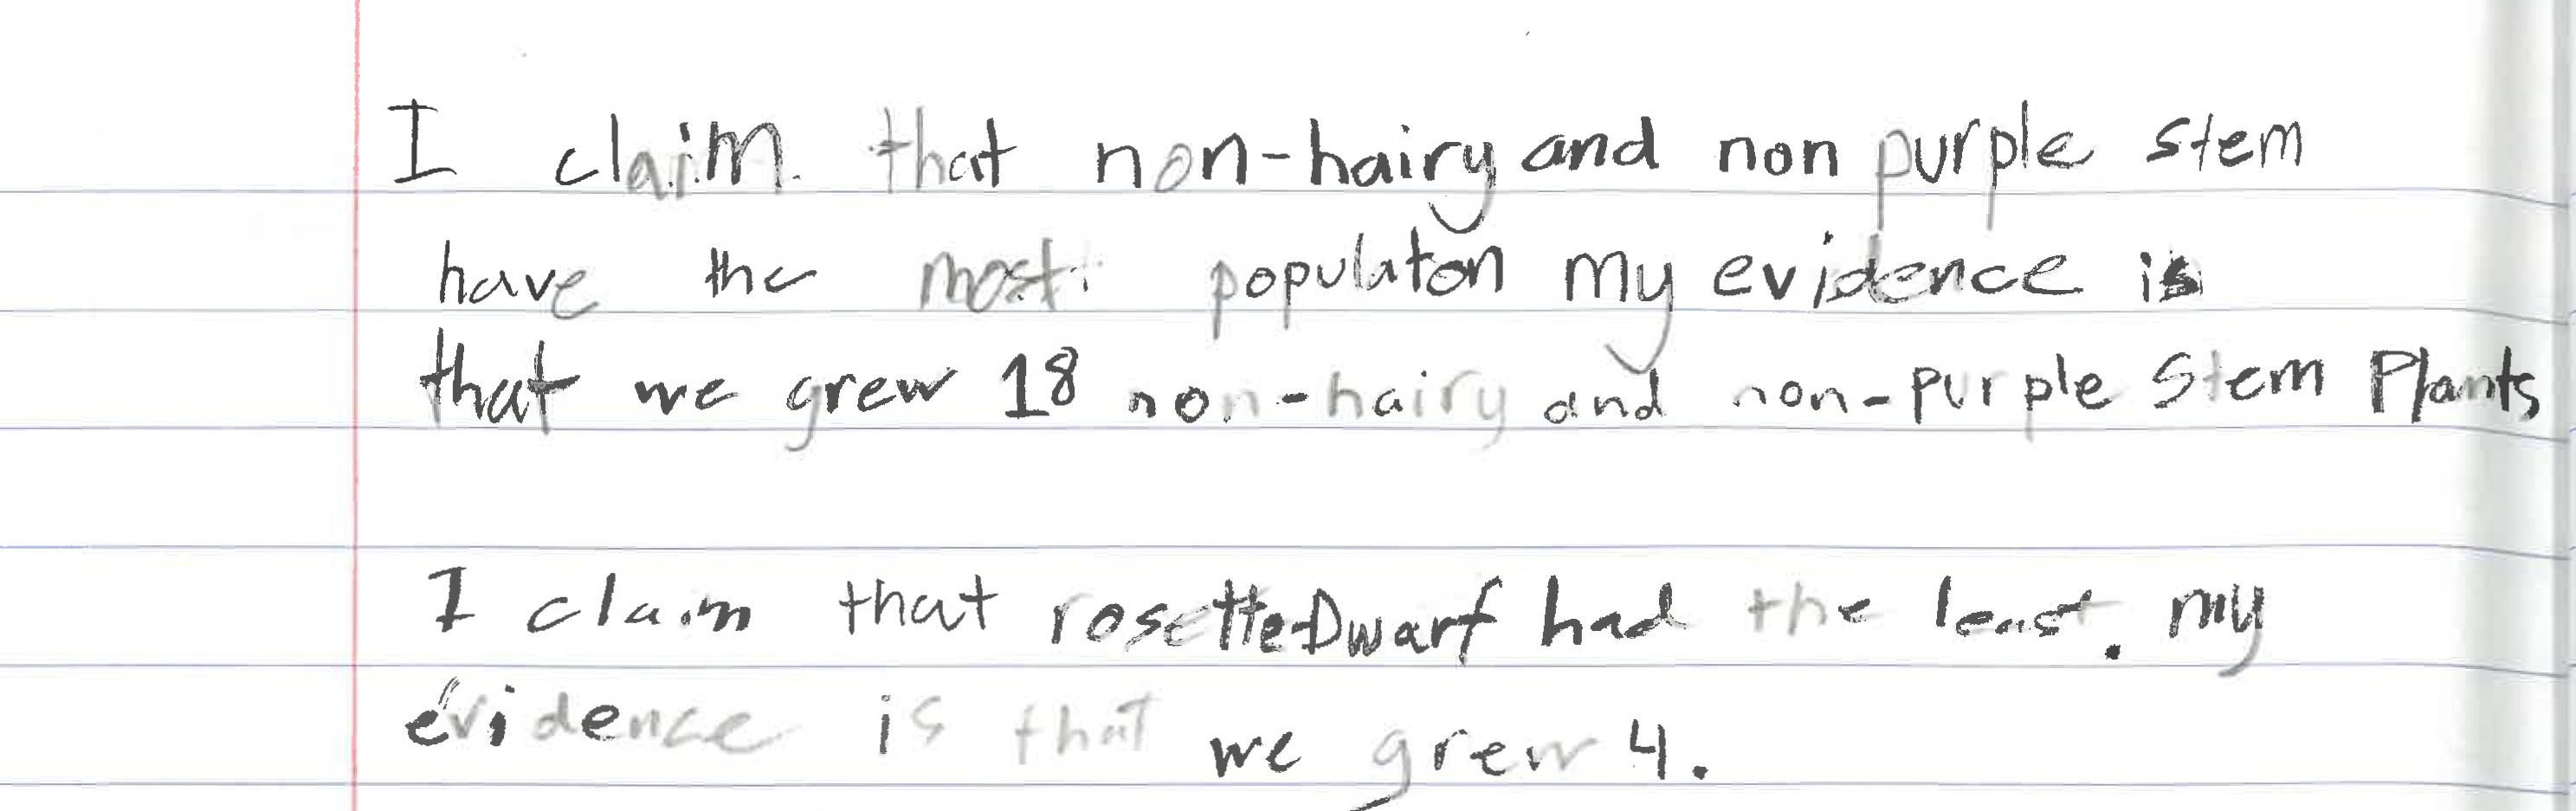 I claim that non-hairy and non purple stem
have the most populaton my evidence is
that we grew 18 non-hairy and non-purple stem Plants
I claim that rosette-Dwarf had the least. my
evidence is that we grew 4.